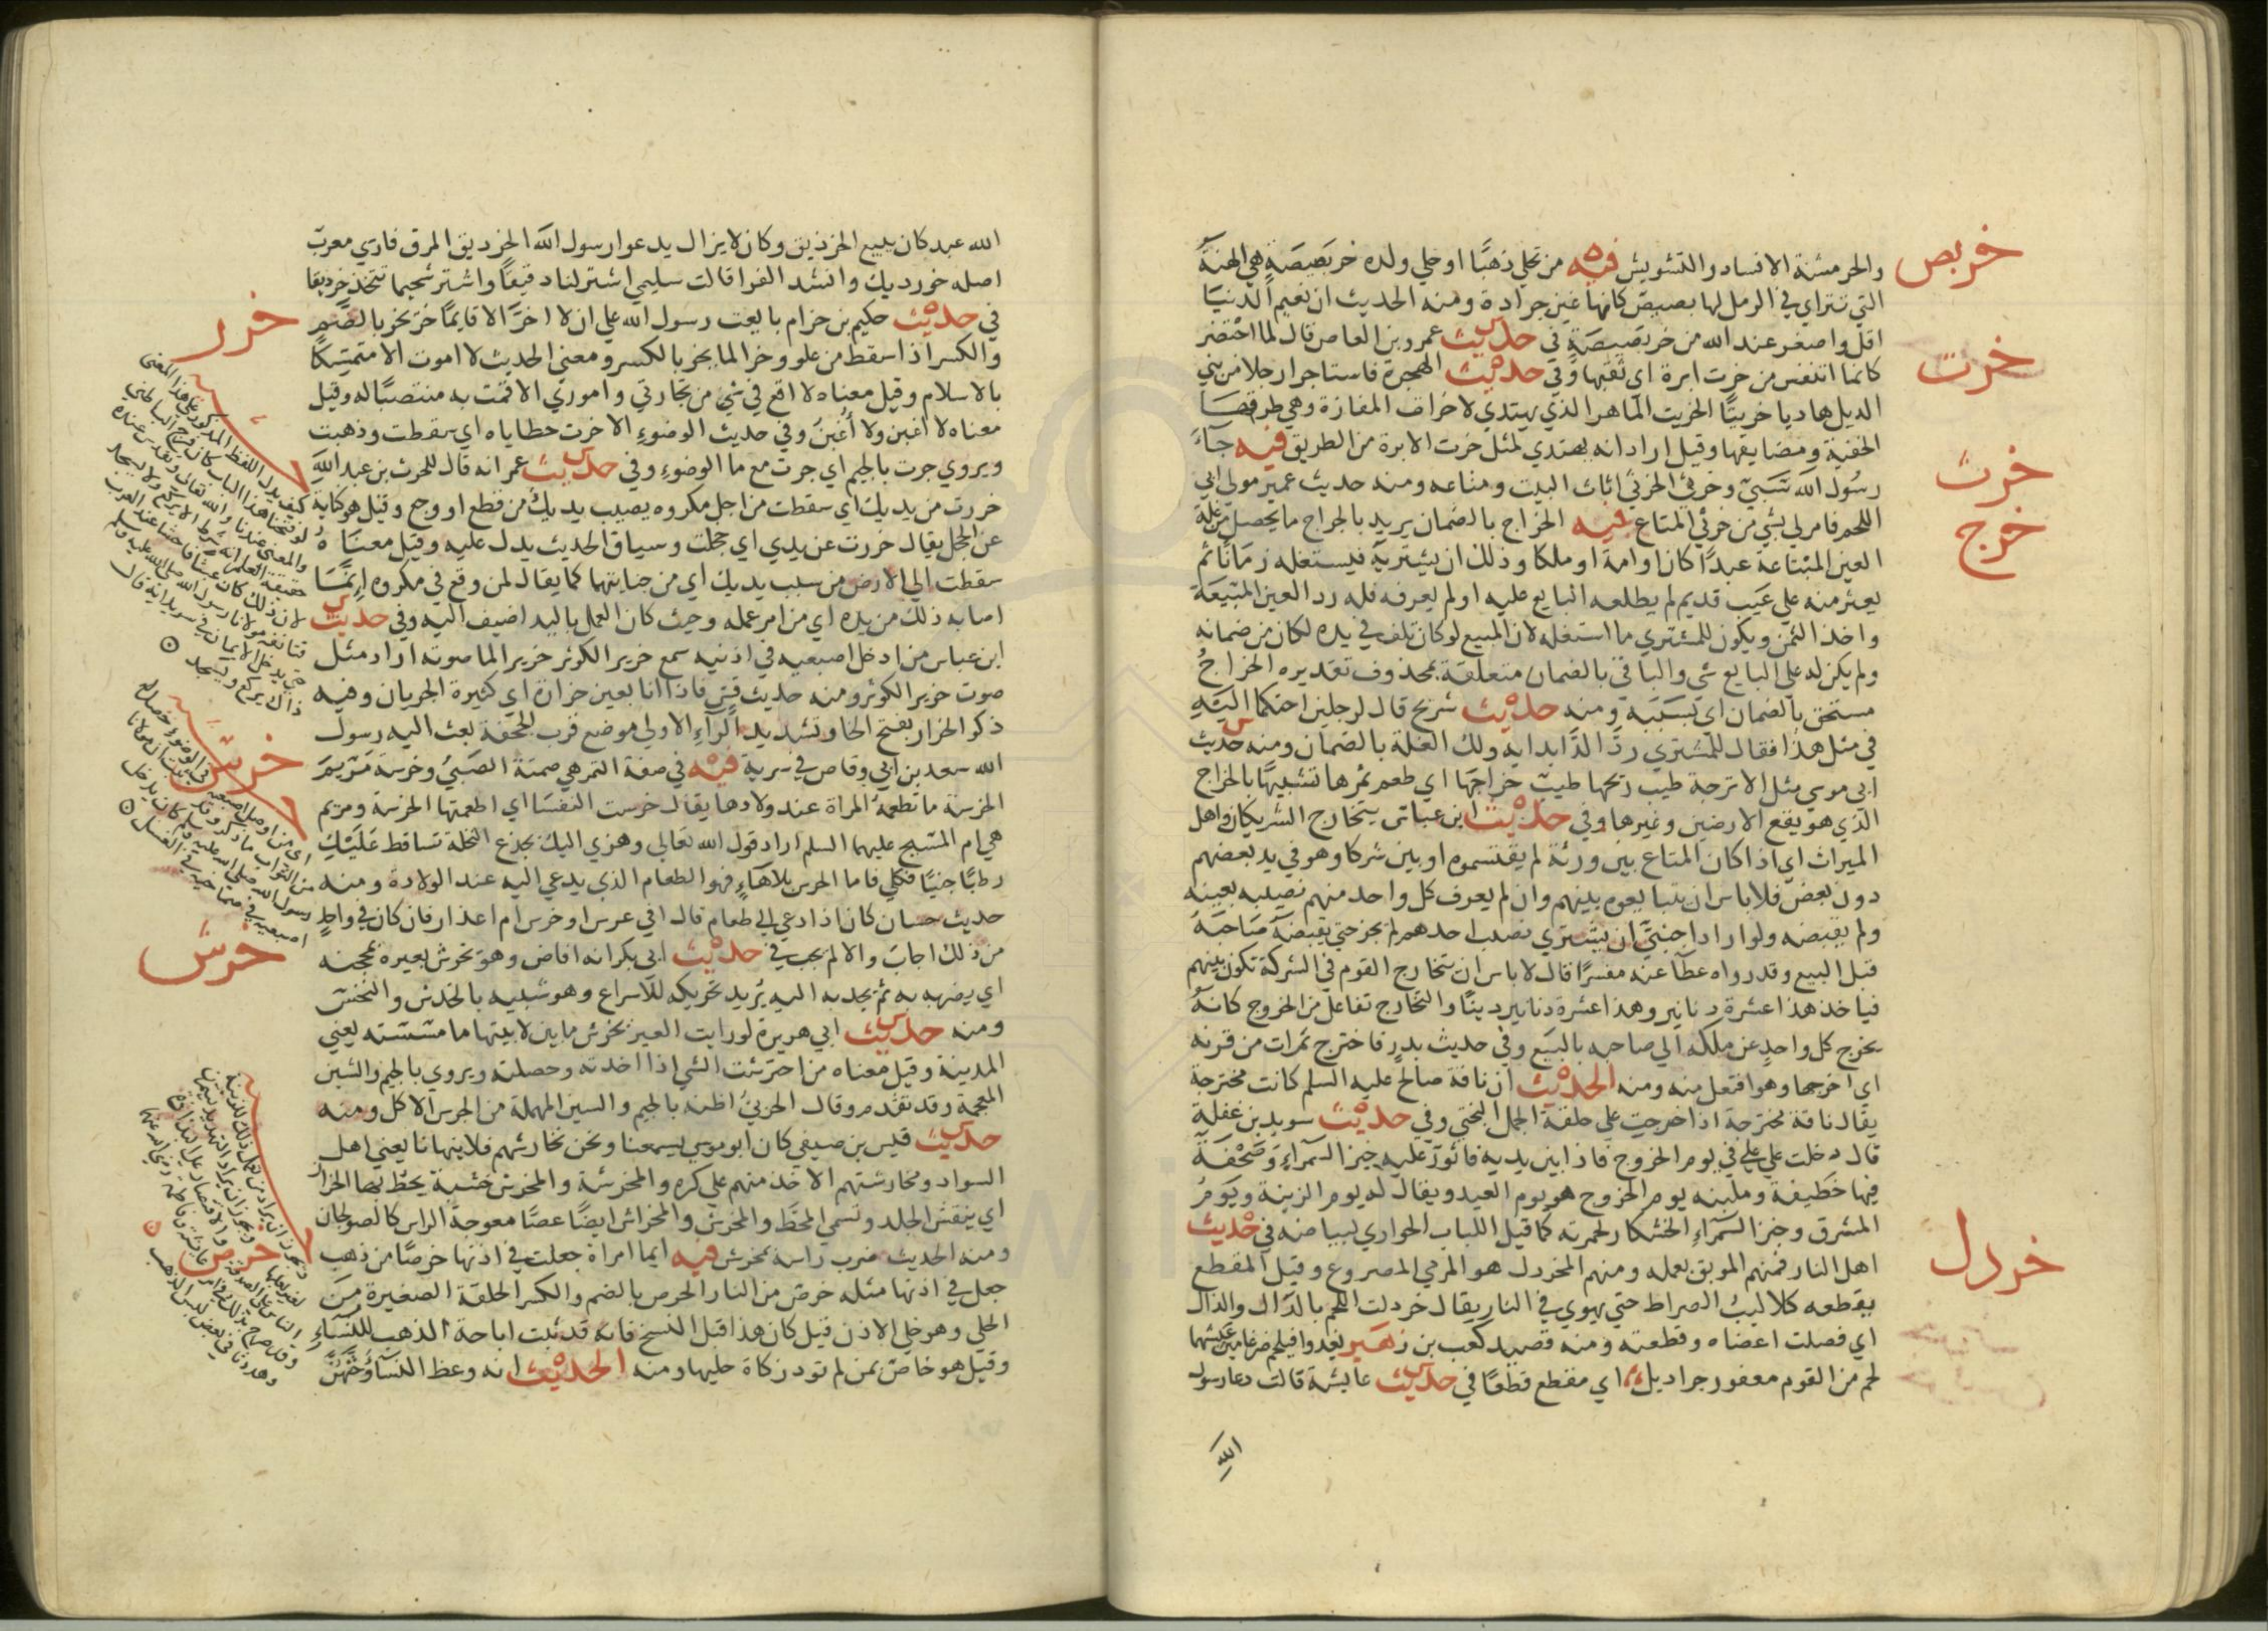 خربص
والخرمشة الافساد والتشويش فيه من تحلي ذهبًا او حلي ولده خربصيصة هي الهنة
التي تتراي في الرمل لها بصيص كانها عين جرادة ومنه الحديث ان نعيم الدنيا
اقل واصغر عند الله من خربصيصة في حديث عمرو بن العاص قال لما احتضر
خرت
كانما اتنفس من خرت ابرة اي ثقبها وفي حديث الهجرة فاستاجرا رجلا من بني
الديل هاديا خريتًا الخريت الماهر الذي يهتدي لاخرات المفازة وهي طرقها
الخفية ومضايقها وقيل اراد انه يهتدي لمثل خرت الابرة من الطريق فيه جاء
خرث
رسول الله سبي وخرثي الخرثي اثاث البيت ومتاعه ومنه حديث عمير مولي ابي
خرج
اللحم فامر لي بشي من خرثي المتاع فيه الخراج بالضمان يريد بالخراج ما يحصل من غلة
العين المبتاعة عبدًا كان او امة او ملكا وذلك ان يشتريه فيستغله زمانًا ثم
يعثر منه علي عيب قديم لم يطلعه البايع عليه او لم يعرفه فله رد العين المبيعة
واخذ الثمن ويكون للمشتري ما استغله لان المبيع لو كان تلف في يده لكان من ضمانه
ولم يكن له علي البايع شي والبا في بالضمان متعلقة بمحذوف تقديره الخراج
مستحق بالضمان اي بسببه ومنه حديث شريح قال لرجلين احتكما اليه
في مثل هذا فقال للمشتري رد الدا بدايه ولك الغلة بالضمان ومنه حديث
ابي موسي مثل الاترجة طيب ريحها طيب خراجها اي طعم ثمرها تشبيها بالخراج
الذي هو يقع الارضين وغيرها وفي حديث ابن عباس يتخارج الشريكان واهل
الميراث اي اذا كان المتاع بين ورثة لم يقتسموه او بين شركا وهو في يد بعضهم
دون بعض فلا باس ان يتبايعوه بينهم وان لم يعرف كل واحد منهم نصيبه بعينه
ولم يقبضه ولو اراد اجنبي ان يشتري نصيب احدهم لم يجز حتي يقبضه صاحبه
قبل البيع وقد رواه عطا عنه مفسرًا قال لا باس ان يتخارج القوم في الشركة تكون بينهم
فياخذ هذا عشرة دنانير وهذا عشرة دنانير دينًا والتخارج تفاعل من الخروج كانه
يخرج كل واحد عن ملكه الي صاحبه بالبيع وفي حديث بدر فاخترج تمرات من قرنه
اي اخرجها وهو افتعل منه ومنه الحديث ان ناقة صالح عليه السلم كانت مخترجة
يقال ناقة مخترجة اذا خرجت علي خلقة الجمل البختي وفي حديث سويد بن غفلة
قال دخلت علي علي في يوم الخروج فاذا بين يديه فاثور عليه خبز السمراء وصحفة
فيها خطيفة وملبنة يوم الخروج هو يوم العيد ويقال له يوم الزينة ويوم
المشرق وخبز السمراء الخشكار لحمرته كما قيل اللباب الحواري لبياضه في حديث
خردل
اهل النار فمنهم الموبق بعمله ومنهم المخردل هو المرمي المصروع وقيل المقطع
يقطعه كلاليب الصراط حتي يهوي في النار يقال خردلت اللحم بالدال والذال
اي فصلت اعضاه وقطعته ومنه قصيد كعب بن زهير يغدوا فيلحم ضرغامين عيشهما
لحم من القوم معفور خراديل اي مقطع قطعًا في حديث عايشة قالت دعا رسول
الله
الله عبد كان يبيع الخرديق وكان لا يزال يدعوا رسول الله الخرديق المرق فارسي معرب
اصله خورديك وانشد الفرا قالت سليمي اشتر لنا دقيقًا واشتر شحيما تتخذ خرديقا
خرر
في حديث حكيم بن حزام بايعت رسول الله علي ان لا اخر الا قايمًا خر يخر بالضم
والكسر اذا سقط من علو وخر الما يخر بالكسر ومعني الحديث لا اموت الا متمسكا
بالاسلام وقيل معناه لا اقع في شي من تجارتي واموري الا قمت به منتصبًا له وقيل
معناه لا اغبن ولا أُغبن وفي حديث الوضوء الا خرت خطاياه اي سقطت وذهبت
ويروي جرت بالجيم اي جرت مع ما الوضوء وفي حديث عمر انه قال للحرث بن عبد الله
خررت من يديك اي سقطت من اجل مكروه يصيب يديك من قطع او وجع وقيل هو كناية
عن الخجل يقال خررت عن يدي اي خجلت وسياق الحديث يدل عليه وقيل معناه
سقطت الي الارض من سبب يديك اي من جنايتهما كما يقال لمن وقع في مكروه انما
اصابه ذلك من يده اي من امر عمله وحيث كان العمل باليد اضيف اليه وفي حديث
ابن عباس من ادخل اصبعيه في اذنيه سمع خرير الكوثر خرير الما صوته اراد مثل
صوت خرير الكوثر ومنه حديث قس فاذا انا بعين خرارة اي كثيرة الجريان وفيه
ذكر الخرار بفتح الخا وتشديد الراء الاولي موضع قرب الجحفة بعث اليه رسول
خرس
الله سعد بن ابي وقاص في سرية فيه في صفة التمر هي صمتة الصبي وخرسة مريم
الخرسة ما تطعمه المراة عند ولادها يقال خرست النفسا اي اطعمتها الخرسة ومريم
هي ام المسيح عليهما السلم اراد قول الله تعالي وهزي اليك بجذع النخلة تساقط عليك
رطبًا جنيًا فكلي فاما الخرس بلا هاء فهو الطعام الذي يدعي اليه عند الولادة ومنه
حديث حسان كان اذا دعي الي طعام قال افي عرس او خرس ام اعذار فان كان في واحد
خرش
من ذلك اجاب والا لم يجب في حديث ابي بكر انه افاض وهو يخرش بعيره بمحجنه
اي يضربه به ثم يجذبه اليه يريد تحريكه للاسراع وهو شبيه بالخدش والنخس
ومنه حديث ابي هريرة لو رايت العير تخرش ما بين لابتيها ما مسسته يعني
المدينة وقيل معناه من اخترشت الشي اذا اخذته وحصلته ويروي بالجيم والشين
المعجمة وقد تقدم وقال الحربي اظنه بالجيم والسين المهملة من الجرس الاكل ومنه
حديث قيس بن صيفي كان ابو موسي يسمعنا ونحن نخارشهم فلا ينهانا يعني اهل
السواد ومخارشتهم الاخذ منهم علي كره والمخرشة والمخرش خشبة يخط بها الخراز
اي ينقش الجلد وتسمي المخط والمخرش والمخراش ايضًا عصًا معوجة الراس كالصولجان
خرص
ومنه الحديث ضرب راسه بمخرش فيه ايما امراة جعلت في اذنها خرصًا من ذهب
جعل في اذنها مثله خرص من النار الخرص بالضم والكسر الحلقة الصغيرة من
الحلي وهو حلي الاذن قيل كان هذا قبل النسخ فانه قد ثبت اباحة الذهب للنساء
وقيل هو خاص بمن لم تود زكاة حليها ومنه الحديث انه وعظ النساء وحثهن